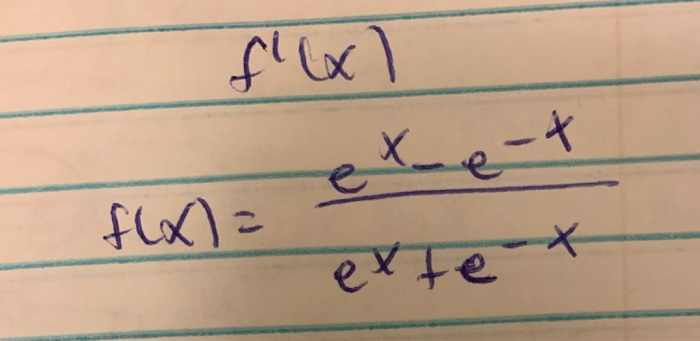 f'(x)
f(x) = \frac{e^x - e^{-x}}{e^x + e^{-x}}